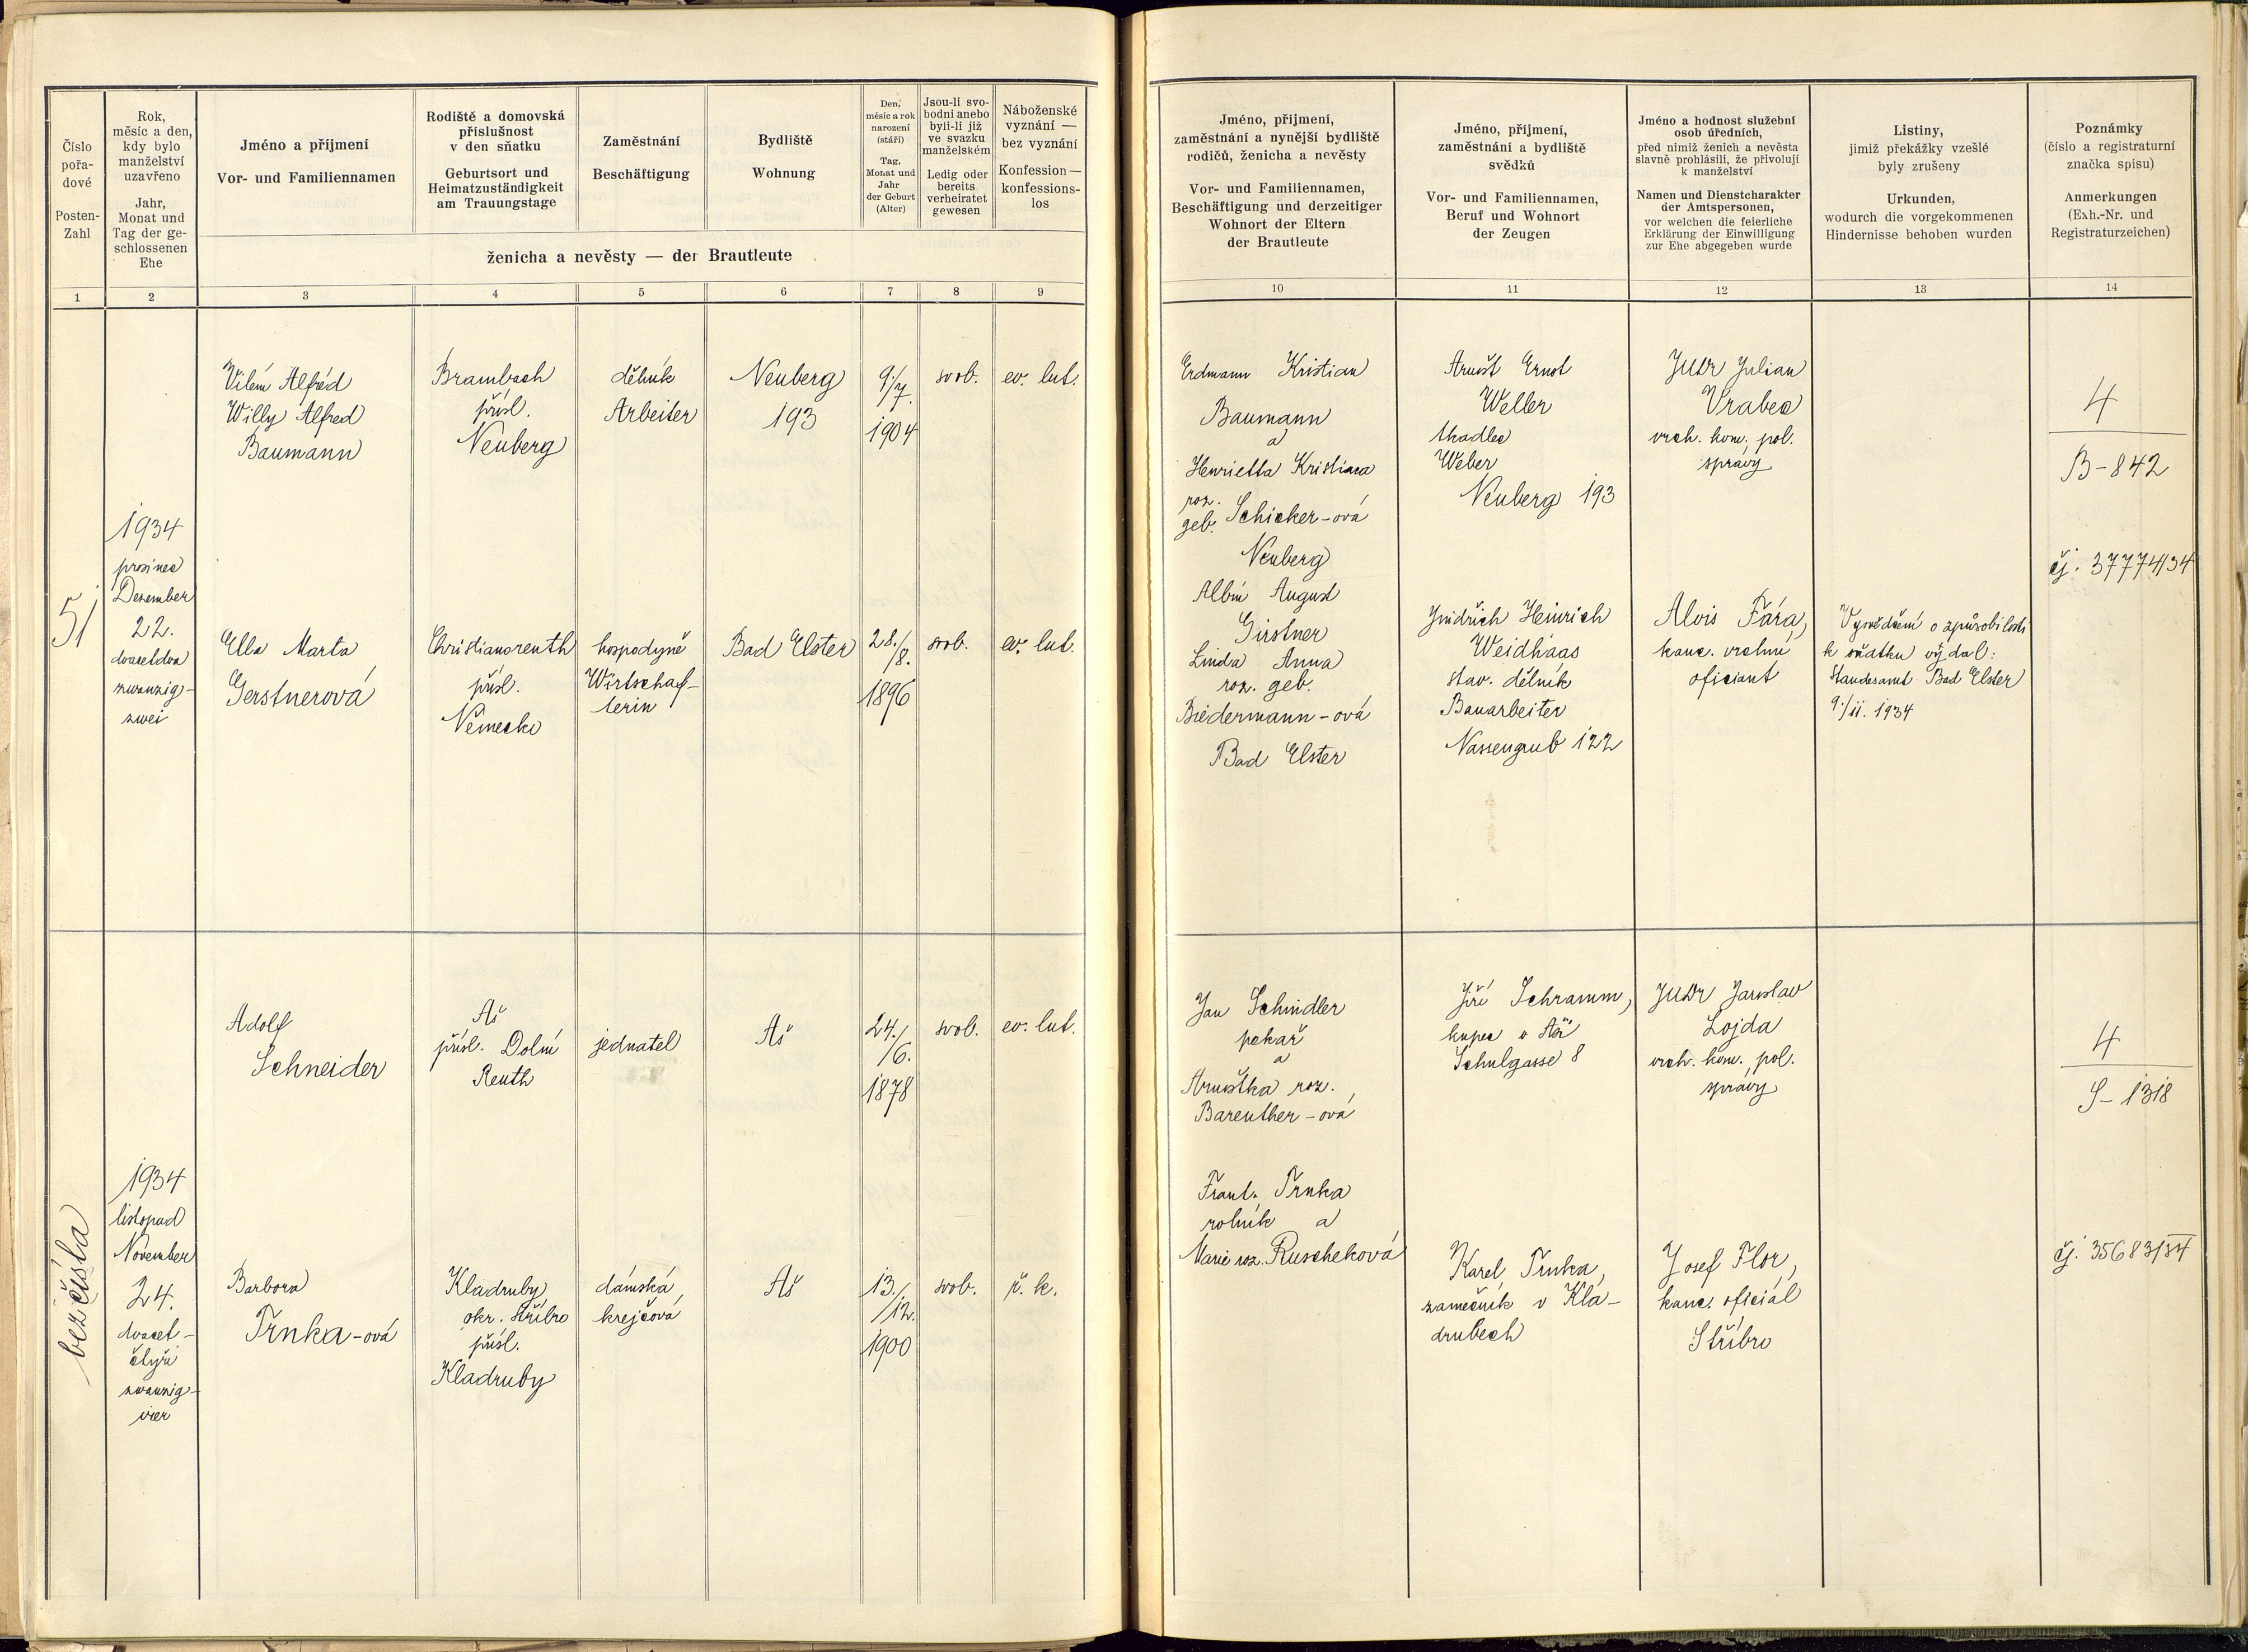 Číslo
pořa-
dové
Posten-
Zahl
Rok,
měsíc a den,
kdy bylo
manželství
uzavřeno
Jahr,
Monat und
Tag der ge-
schlossenen
Ehe
Jméno a příjmení
Vor- und Familiennamen
Rodiště a domovská
příslušnost
v den sňatku
Geburtsort und
Heimatzuständigkeit
am Trauungstage
Zaměstnání
Beschäftigung
Bydliště
Wohnung
Den,
měsíc a rok
narození
(stáří)
Tag,
Monat und
Jahr
der Geburt
(Alter)
Jsou-li svo-
bodni anebo
byli-li již
ve svazku
manželském
Ledig oder
bereits
verheiratet
gewesen
Náboženské
vyznání —
bez vyznání
Konfession —
konfessions-
los
ženicha a nevěsty — der Brautleute
1 2 3 4 5 6 7 8 9
Jméno, příjmení,
zaměstnání a nynější bydliště
rodičů, ženicha a nevěsty
Vor- und Familiennamen,
Beschäftigung und derzeitiger
Wohnort der Eltern
der Brautleute
Jméno, příjmení,
zaměstnání a bydliště
svědků
Vor- und Familiennamen,
Beruf und Wohnort
der Zeugen
Jméno a hodnost služební
osob úředních,
před nimiž ženich a nevěsta
slavně prohlásili, že přivolují
k manželství
Namen und Dienstcharakter
der Amtspersonen,
vor welchen die feierliche
Erklärung der Einwilligung
zur Ehe abgegeben wurde
Listiny,
jimiž překážky vzešlé
byly zrušeny
Urkunden,
wodurch die vorgekommenen
Hindernisse behoben wurden
Poznámky
(číslo a registraturní
značka spisu)
Anmerkungen
(Exh.-Nr. und
Registraturzeichen)
10 11 12 13 14
51
1934
prosinec
Dezember
22.
dvacetdva
zwanzig-
zwei
Vilém Alfréd
Willy Alfred
Baumann
Brambach
přísl.
Neuberg
dělník
Arbeiter
Neuberg
193
9./7.
1904
svob.
ev. lut.
Ella Marta
Gerstnerová
Christiansreuth
přísl.
Německo
hospodyně
Wirtschaf-
terin
Bad Elster
28./8.
1896
svob.
ev. lut.
Erdmann Kristian
Baumann
a
Henrietta Kristiana
roz.
geb. Schicker-ová
Neuberg
Albín August
Girstner
Linda Anna
roz. geb.
Biedermann-ová
Bad Elster
Arnošt Ernst
Weller
tkadlec
Weber
Neuberg 193
Jindřich Heinrich
Weidhaas
stav. dělník
Bauarbeiter
Nassengrub 122
JUDr Julian
Vrabec
vrch. kom. pol.
správy
Alois Fára,
kanc. vrchní
oficiant
Vysvědčení o způsobilosti
k sňatku vydal:
Standesamt Bad Elster
9./11. 1934
4
B-842
čj. 37774/34
bez čísla
1934
listopad
November
24.
dvacet-
čtyři
zwanzig-
vier
Adolf
Schneider
Aš
přísl. Dolní
Reuth
jednatel
Aš
24./6.
1878
svob.
ev. lut.
Barbora
Trnka-ová
Kladruby,
okr. Stříbro
přísl.
Kladruby
dámská
krejčová
Aš
13./12.
1900
svob.
ř. k.
Jan Schindler
pekař
a
Arnoštka roz.
Bareuther-ová
Frant. Trnka
rolník a
Marie roz. Ruscheková
Jiří Schramm,
kupec v Aši
Schulgasse 8
Karel Trnka,
zámečník v Kla-
drubech
JUDr Jaroslav
Lojda
vrch. kom. pol.
správy
Josef Flor,
kanc. oficiál
Stříbro
4
S-1318
čj. 35683/34